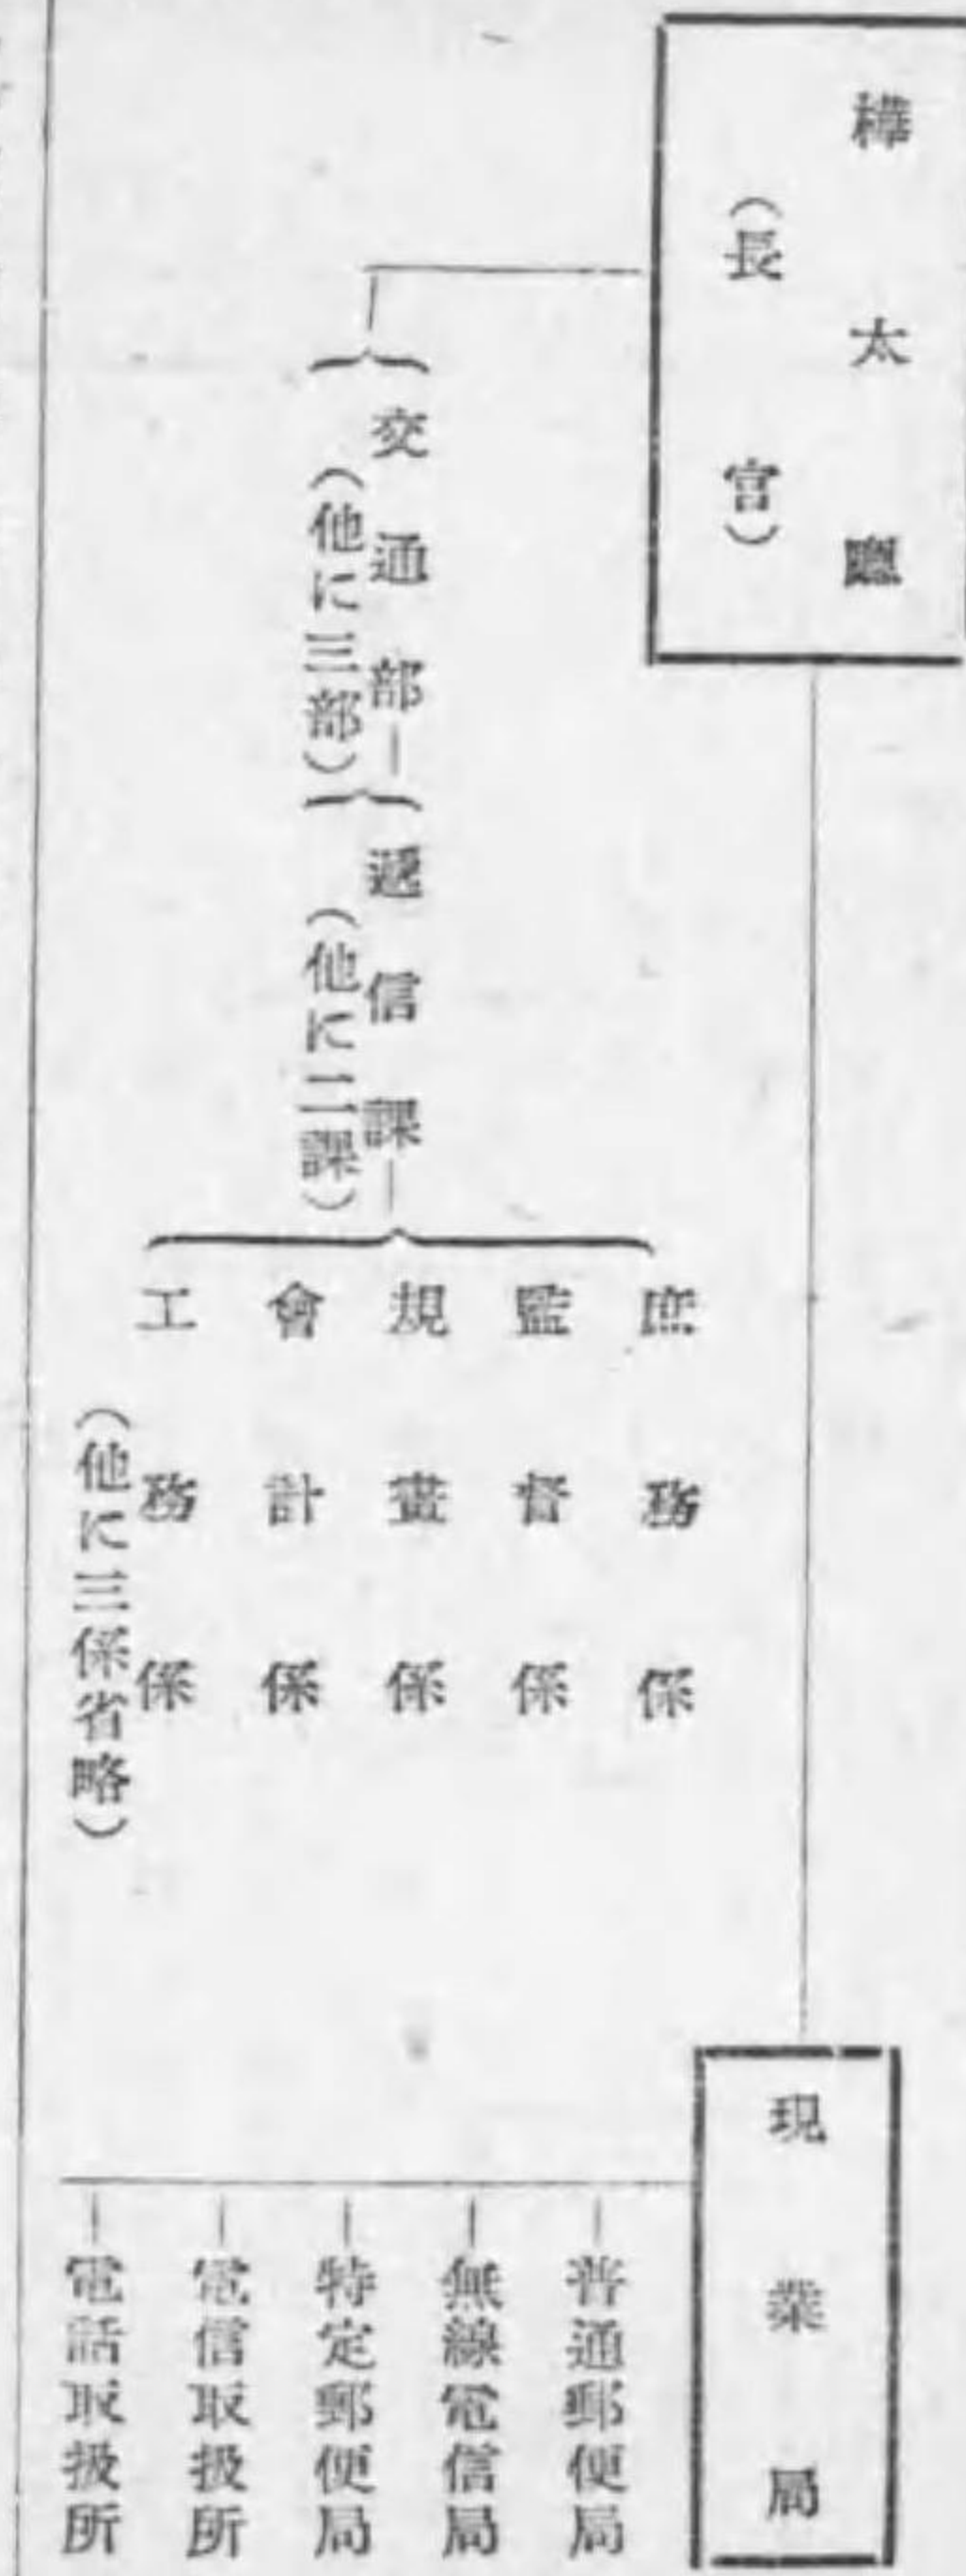 樺太廳
（長官）
交通部
（他に三部）
遞信課
（他に二課）
庶務係
監督係
規畫係
會計係
工務係
（他に三係省略）
現業局
普通郵便局
無線電信局
特定郵便局
電信取扱所
電話取扱所